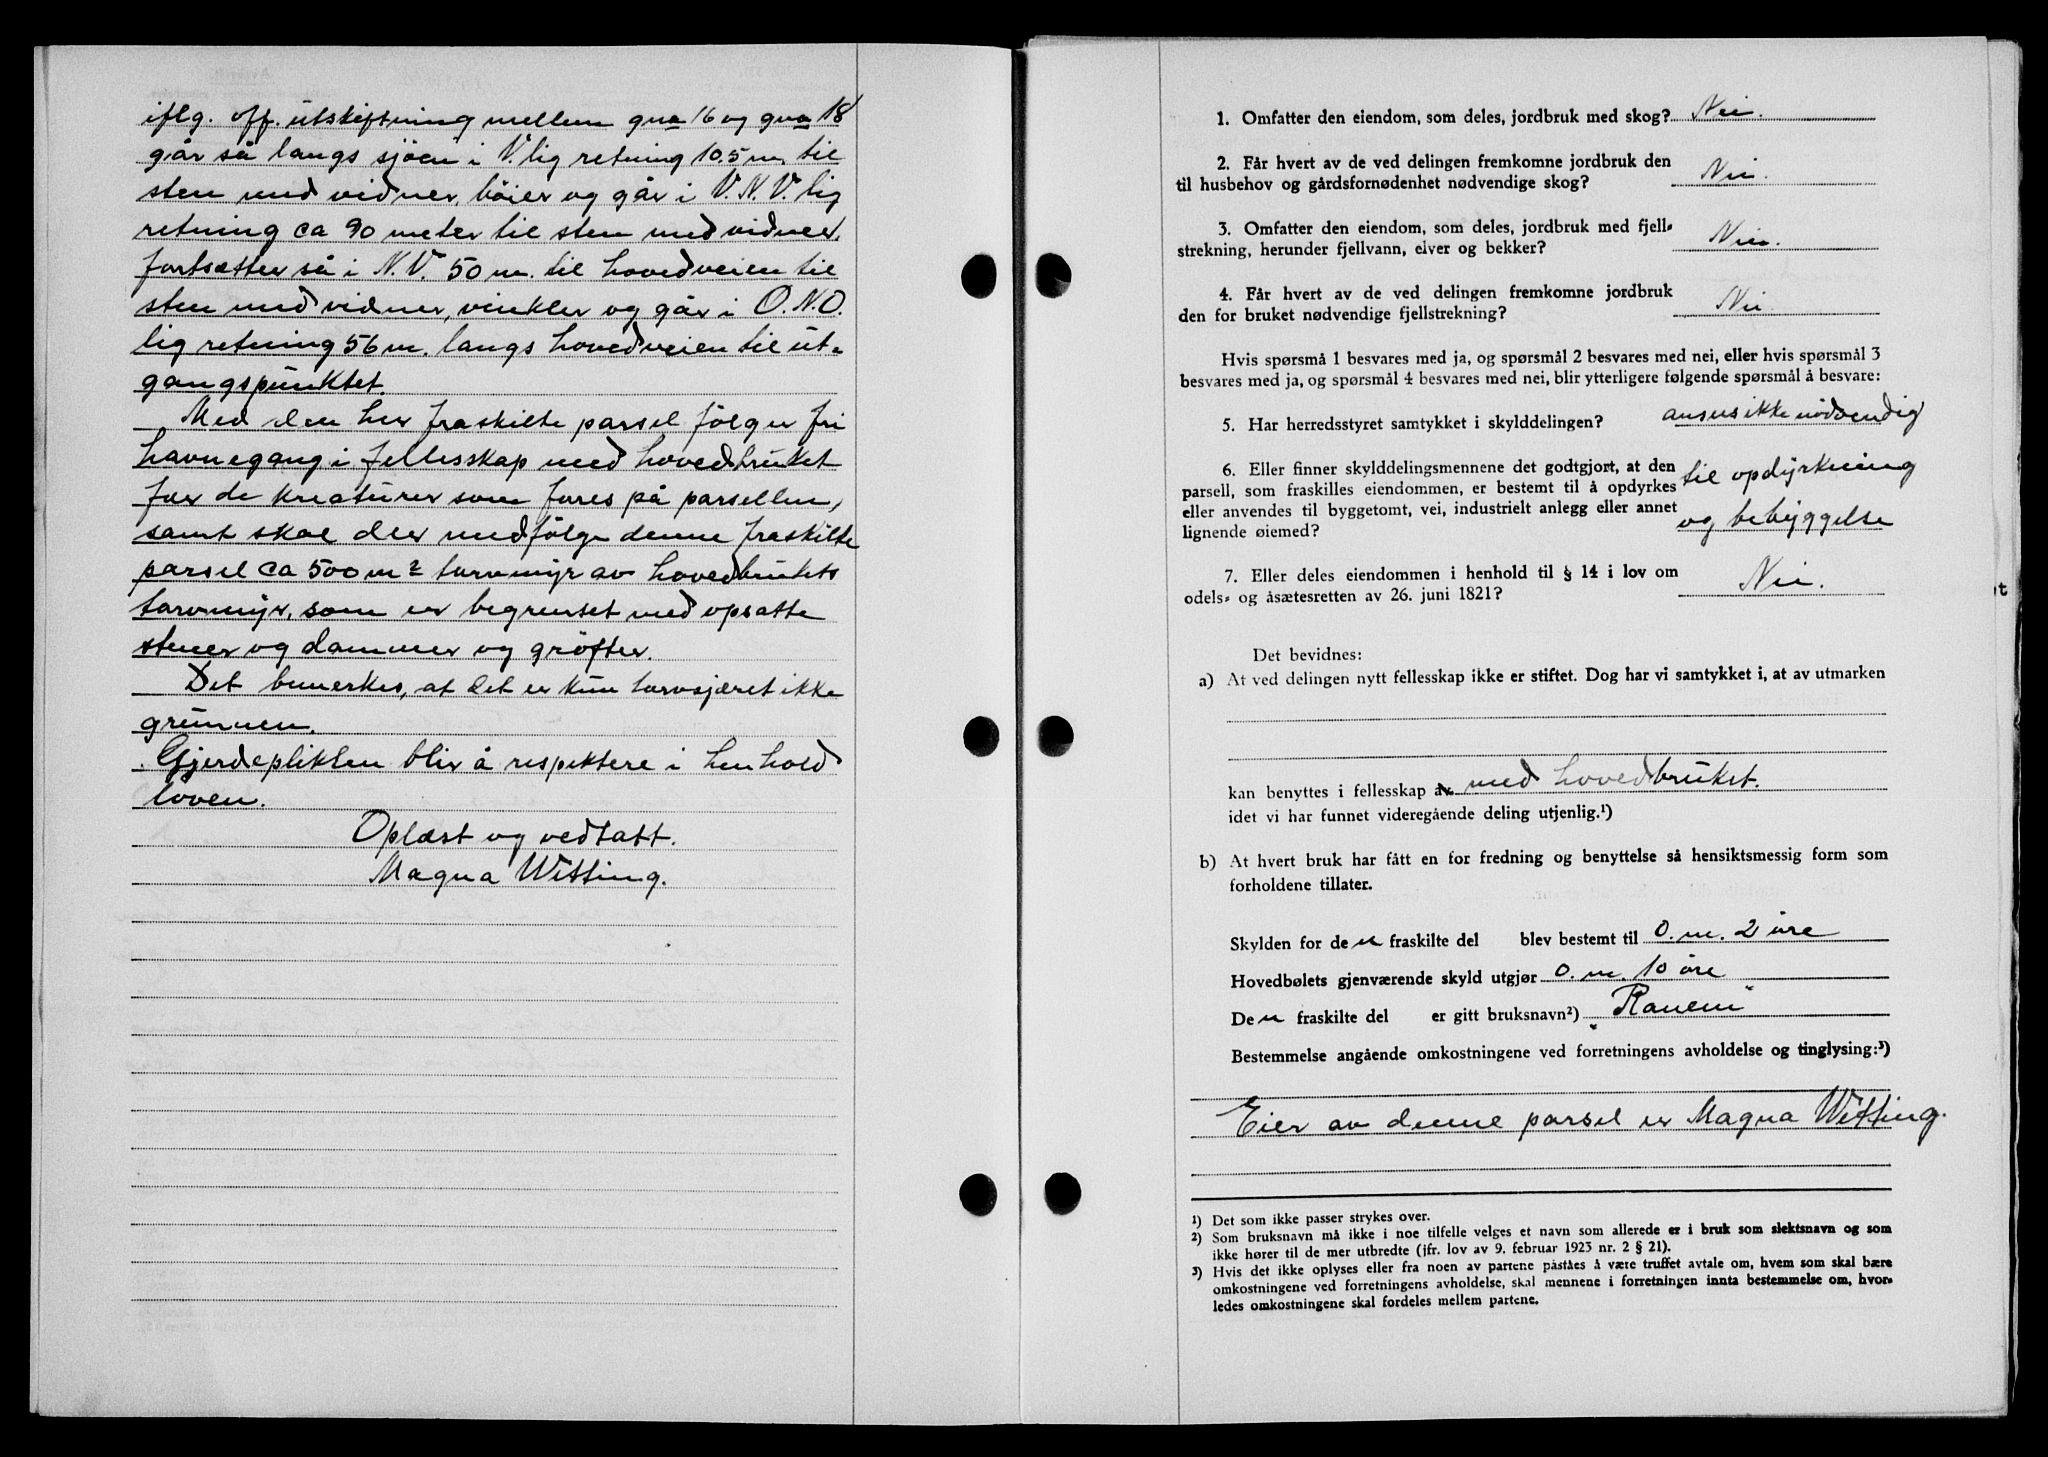 iflg. off. utskiftning mellem gna 16 og gna 18
går så langs sjöen i V.lig retning 10.5 m. til
sten med vidner, böier og går i V.N.V.lig
retning ca 90 meter til sten med vidner,
fortsætter så i N.V. 50 m. til hovedveien til
sten med vidner, vinkler og går i O.N.O.
lig retning 56 m. langs hovedveien til ut-
gangspunktet.
Med den her fraskilte parsel fölger fri
havnegang i fellesskap med hovedbruket
for de kreaturer som fores på parsellen,
samt skal der medfölge denne fraskilte
parsel ca 500 m² torvmyr av hovedbrukets
torvmyr, som er begrenset med opsatte
stener og dammer og gröfter.
Det bemerkes, at det er kun torvskjæret ikke
grunnen.
Gjerdeplikten blir å respektere i henhold
loven.
Oplæst og vedtatt.
Magna Witting.
1. Omfatter den eiendom, som deles, jordbruk med skog? Nei.
2. Får hvert av de ved delingen fremkomne jordbruk den
til husbehov og gårdsfornødenhet nødvendige skog? Nei.
3. Omfatter den eiendom, som deles, jordbruk med fjell-
strekning, herunder fjellvann, elver og bekker? Nei.
4. Får hvert av de ved delingen fremkomne jordbruk
den for bruket nødvendige fjellstrekning? Nei
Hvis spørsmå 1 besvares med ja, og spørsmål 2 besvares med nei, eller hvis spørsmål 3
besvares med ja, og spørsmål 4 besvares med nei, blir ytterligere følgende spørsmål å besvare:
5. Har herredsstyret samtykket i skylddelingen? ansees ikke nödvendig
6. Eller finner skylddelingsmennene det godtgjort, at den
parsell, som fraskilles eiendommen, er bestemt til å opdyrkes
eller anvendes til byggetomt, vei, industrielt anlegg eller annet
lignende øiemed? til opdyrkning
og bebyggelse
7. Eller deles eiendommen i henhold til § 14 i lov om
odels- og åsætesretten av 26. juni 1821? Nei.
Det bevidnes:
a) At ved delingen nytt fellesskap ikke er stiftet. Dog har vi samtykket i, at av utmarken
kan benyttes i fellesskap av med hovedbruket.
idet vi har funnet videregående deling utjenlig.¹)
b) At hvert bruk har fått en for fredning og benyttelse så hensiktsmessig form som
forholdene tillater.
Skylden for den fraskilte del blev bestemt til 0. m. 2 öre
Hovedbølets gjenværende skyld utgjør 0. m. 10 öre
Den fraskilte del er gitt bruksnavn²) "Ranem"
Bestemmelse angående omkostningene ved forretningens avholdelse og tinglysing:³)
Eier av denne parsel er Magna Witting.
¹) Det som ikke passer strykes over.
²) Som bruksnavn må ikke i noe tilfelle velges et navn som allerede er i bruk som slektsnavn og som
ikke hører til de mer utbredte (jfr. lov av 9. februar 1923 nr. 2 § 21).
³) Hvis det ikke oplyses eller fra noen av partene påståes å være truffet avtale om, hvem som skal bære
omkostningene ved forretningens avholdelse, skal mennene i forretningen innta bestemmelse om, hvor-
ledes omkostningene skal fordeles mellem partene.